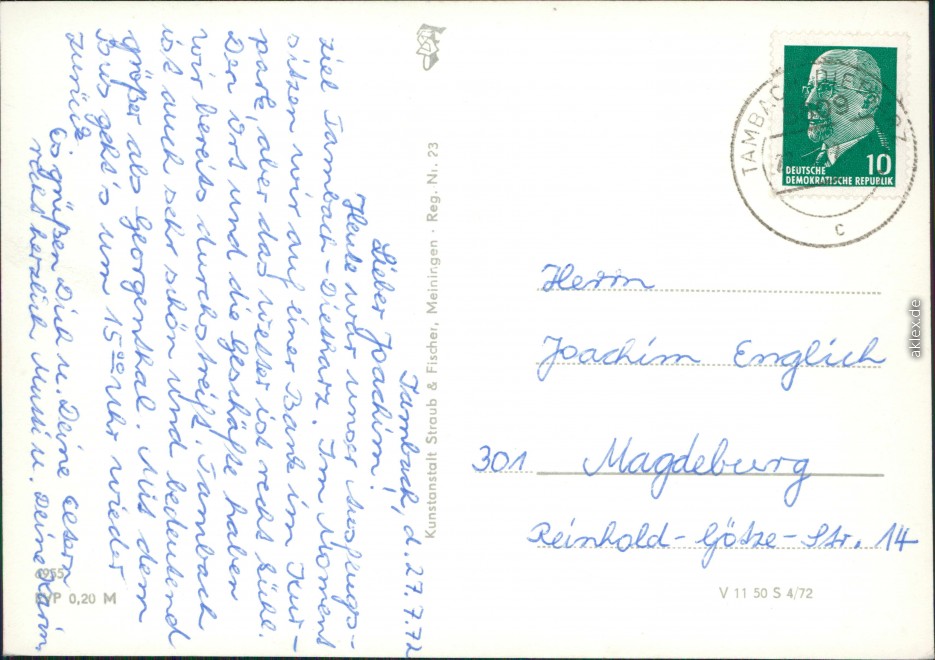 Tambach, d. 27.7.72
Lieber Joachim!
Heute war unser Ausflugs-
ziel Tambach-Dietharz. Im Moment
sitzen wir auf einer Bank im Kur-
park, aber das Wetter ist recht kühl.
Den Ort und die Geschäfte haben
wir bereits durchstreift. Tambach
ist auch sehr schön und bedeutend
größer als Georgenthal. Mit dem
Bus geht's um 15⁰⁰ Uhr wieder
zurück.
Es grüßen Dich u. Deine Eltern
recht herzlich Mutti u. Deine Karin
Kunstanstalt Straub & Fischer, Meiningen · Reg. Nr. 23
DEUTSCHE
DEMOKRATISCHE REPUBLIK
10
TAMBACH-DIETHARZ
c
Herrn
Joachim Englich
301 Magdeburg
Reinhold-Götze-Str. 14
V 11 50 S 4/72
EVP 0,20 M
aklex.de